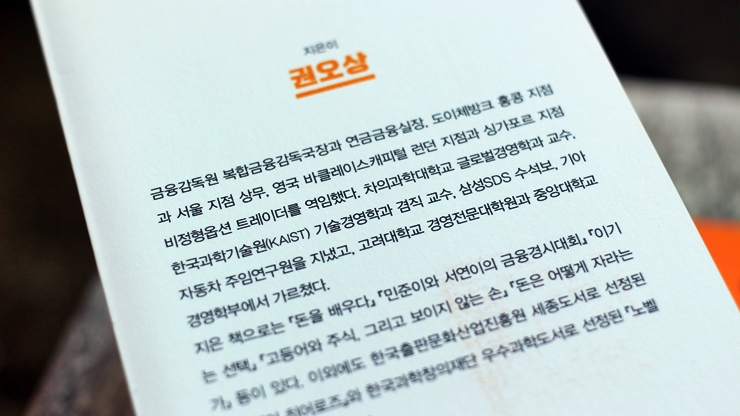 지은이
권오상
금융감독원 복합금융감독국장과 연금금융실장, 도이체방크 홍콩 지점
과 서울 지점 상무, 영국 바클레이스캐피털 런던 지점과 싱가포르 지점
비정형옵션 트레이더를 역임했다. 차의과학대학교 글로벌경영학과 교수,
한국과학기술원(KAIST) 기술경영학과 겸직 교수, 삼성SDS 수석보, 기아
자동차 주임연구원을 지냈고, 고려대학교 경영전문대학원과 중앙대학교
경영학부에서 가르쳤다.
지은 책으로는 『돈을 배우다』, 『민준이와 서연이의 금융경시대회』, 『이기
는 선택』, 『고등어와 주식, 그리고 보이지 않는 손』, 『돈은 어떻게 자라는
가』 등이 있다. 이외에도 한국출판문화산업진흥원 세종도서로 선정된
히어로즈』와 한국과학창의재단 우수과학도서로 선정된 『노벨